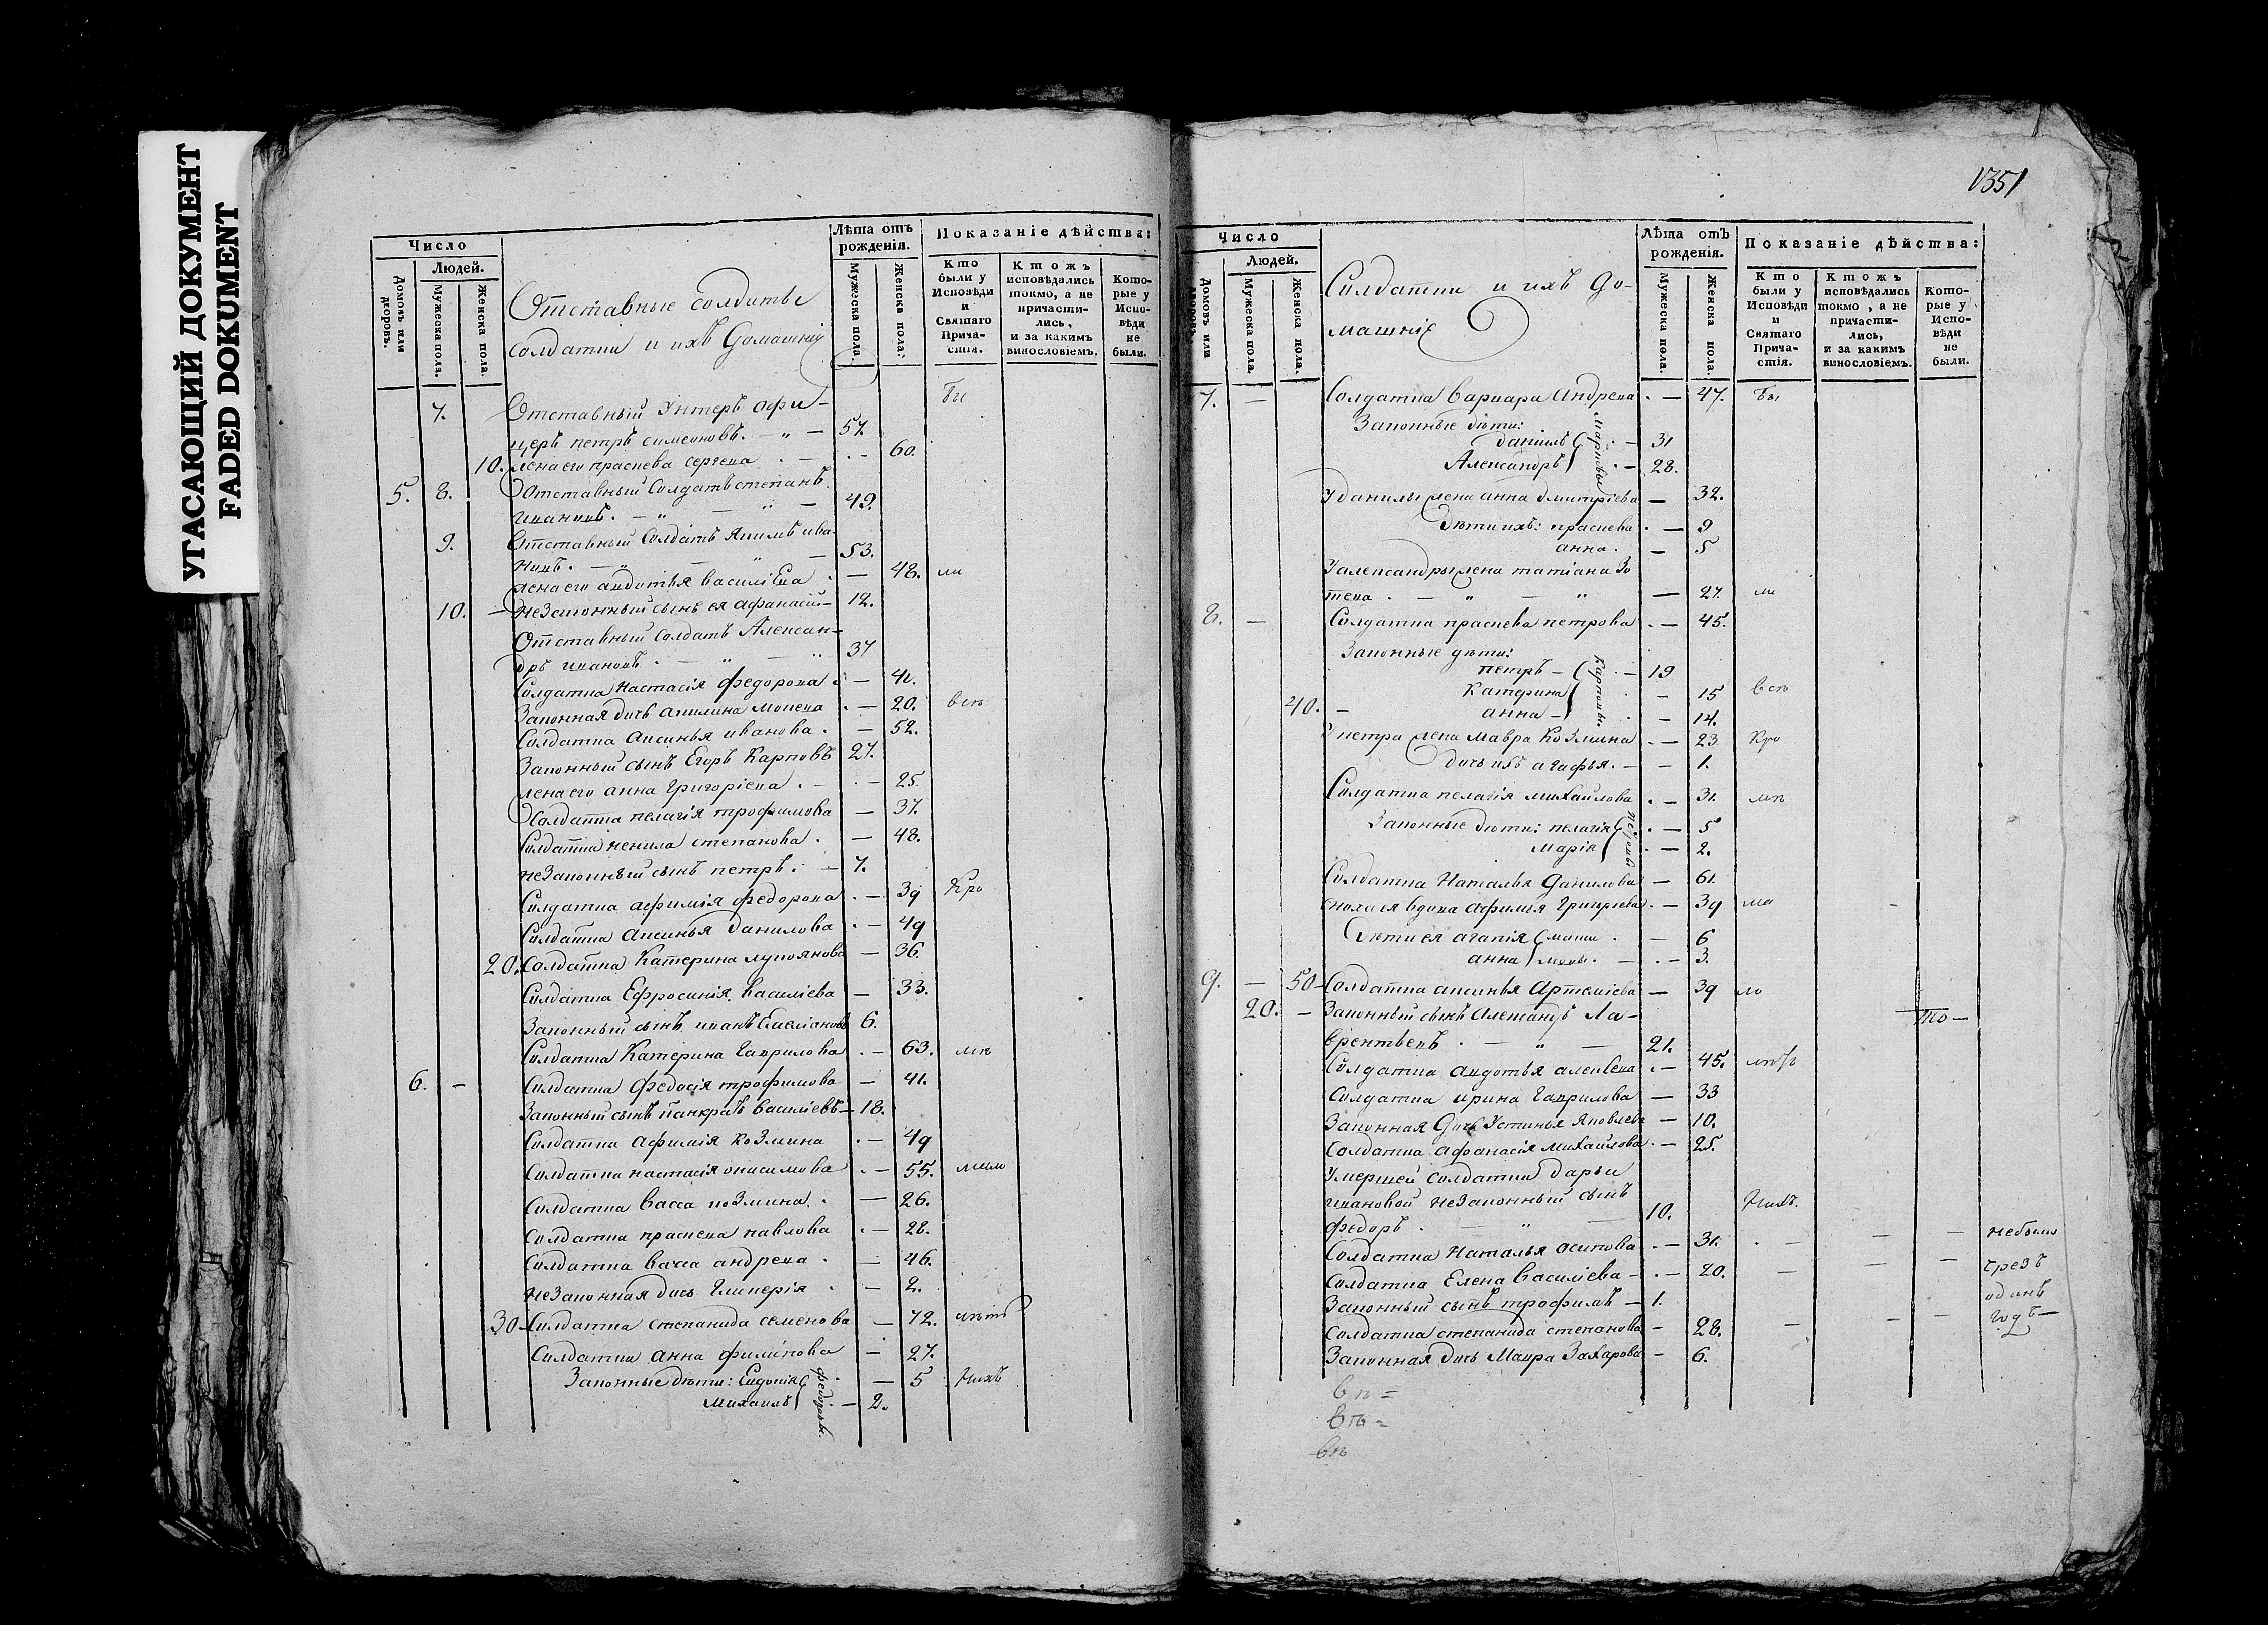 УГАСАЮЩИЙ ДОКУМЕНТ
FADED DOKUMENT
Число
Людей.
Домовъ или дворовъ.
Мужеска пола.
Женска пола.
Отставные солдаты
солдатки и ихъ домашнія
Лѣта отъ рожденія.
Мужеска пола.
Женска пола.
Показаніе дѣйства:
Кто были у Исповѣди и Святаго Причастія.
Ктожъ исповѣдались токмо, а не причастились, и за какимъ винословіемъ.
Которые у Исповѣди не были.
7. Отставный Унтеръ офи- Бы
церъ петръ симеоновъ. — „ — 57.
10. жена его праскева сергева . — 60.
5. 8. Отставный солдатъ степанъ
ивановъ. — „ — „ — 49.
9. Отставный солдатъ якимъ ива-
новъ. — „ — „ — 53.
жена его авдотья василіева . — 48. ли
10. — незаконный сынъ ея афанасій — 12.
Отставный солдатъ Алексан-
дръ ивановъ . — „ — „ 37
Солдатка настасія федорова . — 41.
Законная дочь акилина мокева . — 20. всѣ
Солдатка аксинья иванова . — 52.
Законный сынъ Егоръ Карповъ 27.
жена его анна григоріева . — 25.
Солдатка пелагія трофимова — 37.
Солдатка ненила степанова . — 48.
незаконный сынъ петръ . — 7.
Солдатка афимія федорова . — 39 Кро
Солдатка аксинья данилова . — 49
20. Солдатка Катерина лукоянова — 36.
Солдатка Ефросинія василіева — 33.
Законный сынъ иванъ Емеліановъ 6.
Солдатка Катерина гаврилова . — 63. мѣ
6. — Солдатка федосія трофимова — 41.
Законный сынъ панкратъ василіевъ — 18.
Солдатка афимія козмина . — 49
Солдатка настасія онисимова . — 55.
Солдатка васса козмина . — 26.
Солдатка праскева павлова . — 28.
Солдатка васса андрева . — 46.
незаконная дочь гликерія . — 2.
30 — Солдатка степанида семенова — 72.
Солдатка анна филипова — 27.
Законные дѣти: Евдокія . — 5 нихъ
михаилъ федоровы. — 2.
1351
Число
Людей.
Домовъ или дворовъ.
Мужеска пола.
Женска пола.
Солдатки и ихъ до-
машніе
Лѣта отъ рожденія.
Мужеска пола.
Женска пола.
Показаніе дѣйства:
Кто были у Исповѣди и Святаго Причастія.
Ктожъ исповѣдались токмо, а не причастились, и за какимъ винословіемъ.
Которые у Исповѣди не были.
7. — Солдатка варвара андрева . — 47. Бы
Законные дѣти:
данилъ . — 31
Александръ . — 28.
У данилы жена анна дмитріева — 32.
дѣти ихъ: праскева . — 9
анна . — 5
У александры жена татіана Зо
тева . — „ — „ — 27. ли
8. — Солдатка праскева петрова . — 45.
Законные дѣти:
петръ — . — 19
Катерина . — 15 всѣ
40. — анна — Карповы. . — 14.
У петра жена мавра Козмина . — 23 Кро
дочь ихъ агафья. — — 1.
Солдатка пелагія михайлова . — 31. мѣ
Законные дѣти: пелагія . — 5
марія . — 2.
Солдатка Наталья данилова — 61.
сноха ея вдова афимья григорьева . — 39
дѣти ея агапія . — 6
анна . — 3.
9. — 50 — Солдатка аксинья артеміева — 39
20. — Законный сынъ александръ Ла- то —
врентьевъ . — „ — 21.
Солдатка авдотья алексева . — 45.
Солдатка ирина гаврилова — 33
Законная дочь Устинья яковлева — 10.
Солдатка афанасія михайлова . — 25.
Умершей солдатки дарьи
ивановой незаконный сынъ нихъ.
федоръ . — „ — 10.
Солдатка наталья осипова . — 31. . — — — небыли
Солдатка Елена василіева — . — 20. — — — чрезъ
Законный сынъ трофимъ — 1. одинъ
Солдатка степанида степанова — 28. — — — годъ —
Законная дочь мавра Захарова — 6.